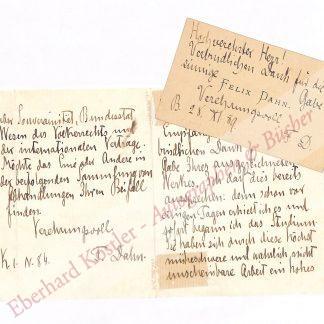 Hochverehrter Herr!
Verbindlichen Dank für die
Gabe
FELIX DAHN.
Verehrungsvoll
B 28. XI 89. D
der Souverainität, Bundesstat
Wesen des Völkerrechts und
der internationalen Verträge.
Möchte das Eine oder Andere in
der beifolgenden Sammlung von
Abhandlungen Ihren Beifall
finden.
Verehrungsvoll
K 1. IV. 84. F Dahn.
Empfang
bindlichen Dank
Gabe Ihres ausgezeichneten
Werkes, daß dies bereits
denn schon vor
einigen Tagen erhielt ich es und
begann ich das Studium.
Sie haben sich durch diese höchst
mühselige und wahrlich nicht
unscheinbare Arbeit ein hohes
Eberhard Köstler - Autographen & Bücher